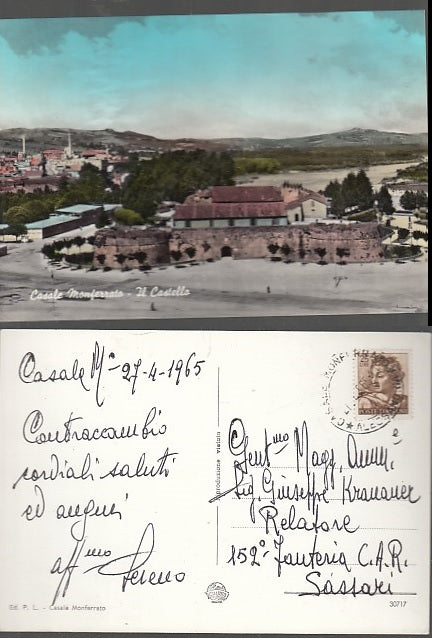 Casale Monferrato - Il Castello
Casale M.to 27-4-1965
Contraccambio
cordiali saluti
ed auguri
aff.mo Sereno
riproduzione vietata
POSTE ITALIANE
Gent.mo Magg.
Sig. Giuseppe Kramauer
Relatore
152° Fanteria C.A.R.
Sassari
Ed. P. L. - Casale Monferrato
30717